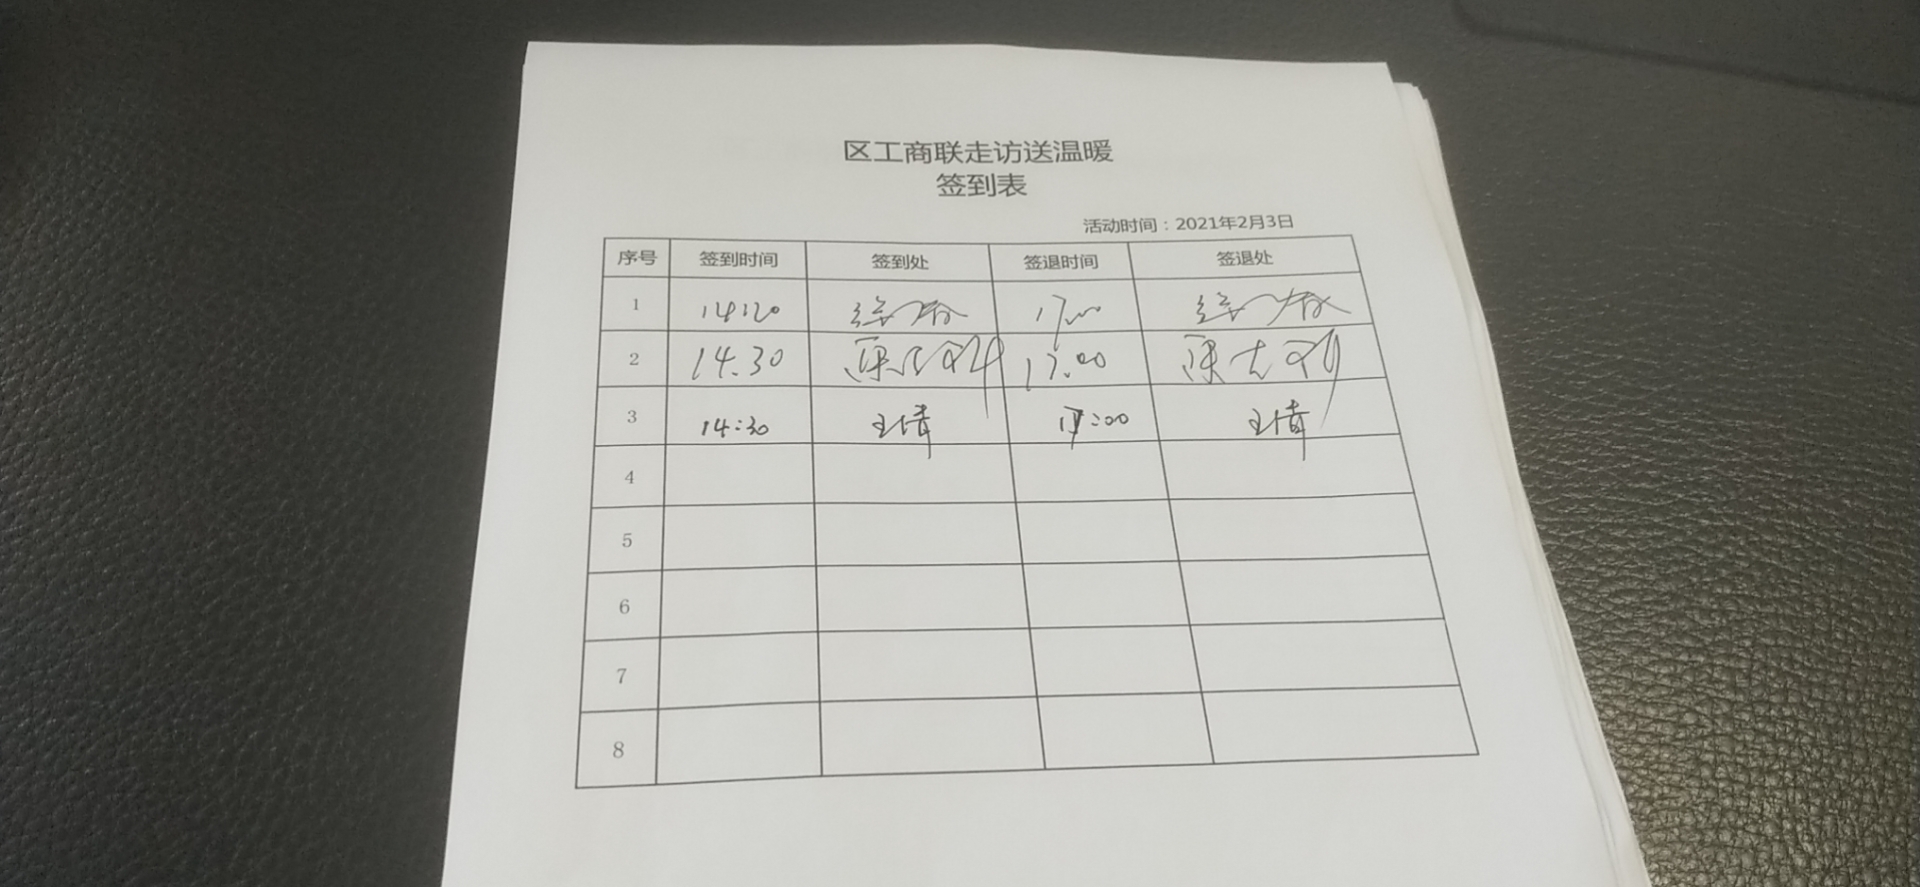 区工商联走访送温暖
签到表
活动时间：2021年2月3日
序号 签到时间 签到处 签退时间 签退处
1 14:20 17:00
2 14.30 17.00
3 14:30 王倩 17:00 王倩
4
5
6
7
8